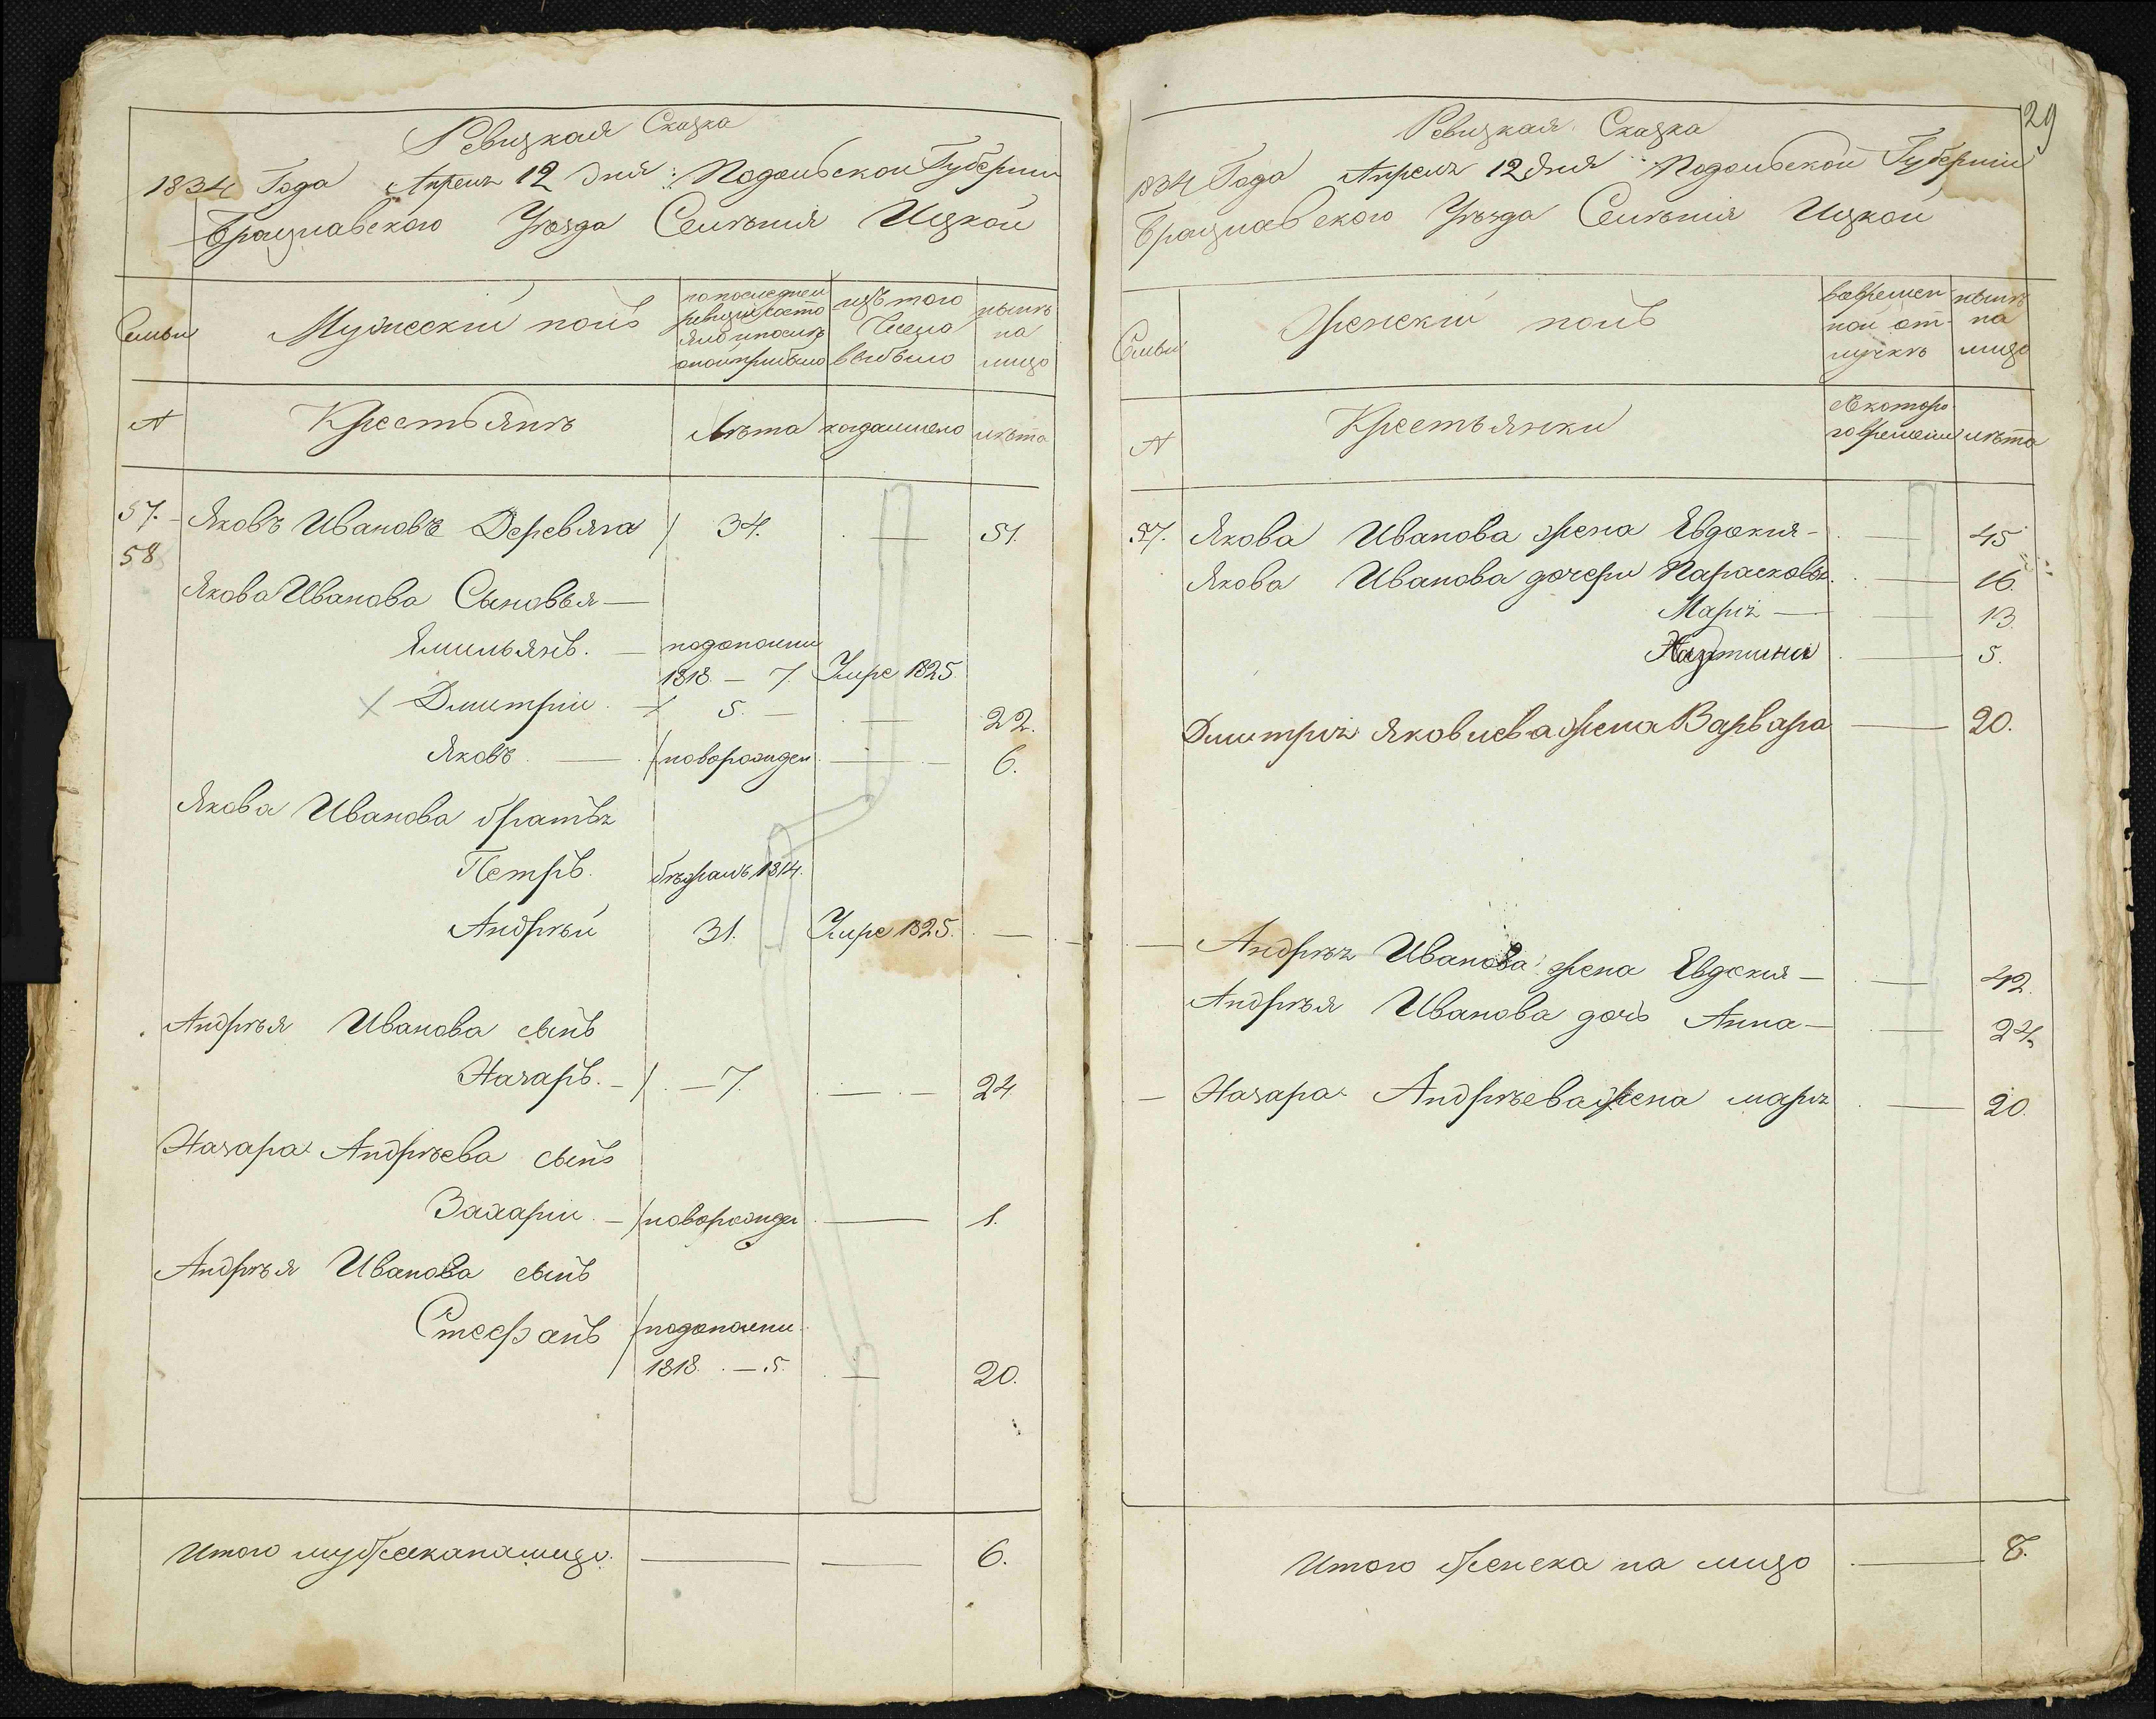 Ревизкая Сказка
1834 Года Апреля 12 дня: Подольской Губернии
Брацлавского Уѣзда Селѣния Ицкой
Семьи
Мужеский полъ
по последней ревизии состояло и после оной прибыло
изъ того Числа выбыло
нынѣ на лицо
№
Крестьянѣ
Лѣта
когда имено
лѣта
57. Яковъ Ивановъ Деревяга 34. — 51.
58
Якова Иванова Сыновья —
Емильянъ. — по дополни 1818. — 7. Умре 1825.
Дмитрии. 5. — — 22.
Яковъ. — новорожден — 6.
Якова Иванова братья
Петръ. бѣжалъ 1814.
Андрѣй 31. Умре 1825. —
Андрѣя Иванова сынъ
Назаръ. — 7. — 24.
Назара Андрѣева сынъ
Захарии. — новорожден — 1.
Андрѣя Иванова сынъ
Стефанъ по дополни 1818. — 5. — 20.
Итого мужеска на лицо. — — 6.
29
Ревизкая Сказка
1834 Года Апреля 12 дня Подольской Губернии
Брацлавского Уѣзда Селѣния Ицкой
Семьи
Женский полъ
во времен ной от лучкѣ
нынѣ на лицо
№
Крестьянки
съ которо го времени
лѣта
57. Якова Иванова жена Евдокия — — 45
Якова Иванова дочери Парасковья. — 16.
Мария — — 13.
— 5.
Дмитрия Яковлева жена Варвара — 20.
— Андрѣя Иванова жена Евдокия — — 42.
Андрѣя Иванова дочь Анна — — 24.
— Назара Андрѣева жена мария — 20.
Итого женска на лицо — 8.